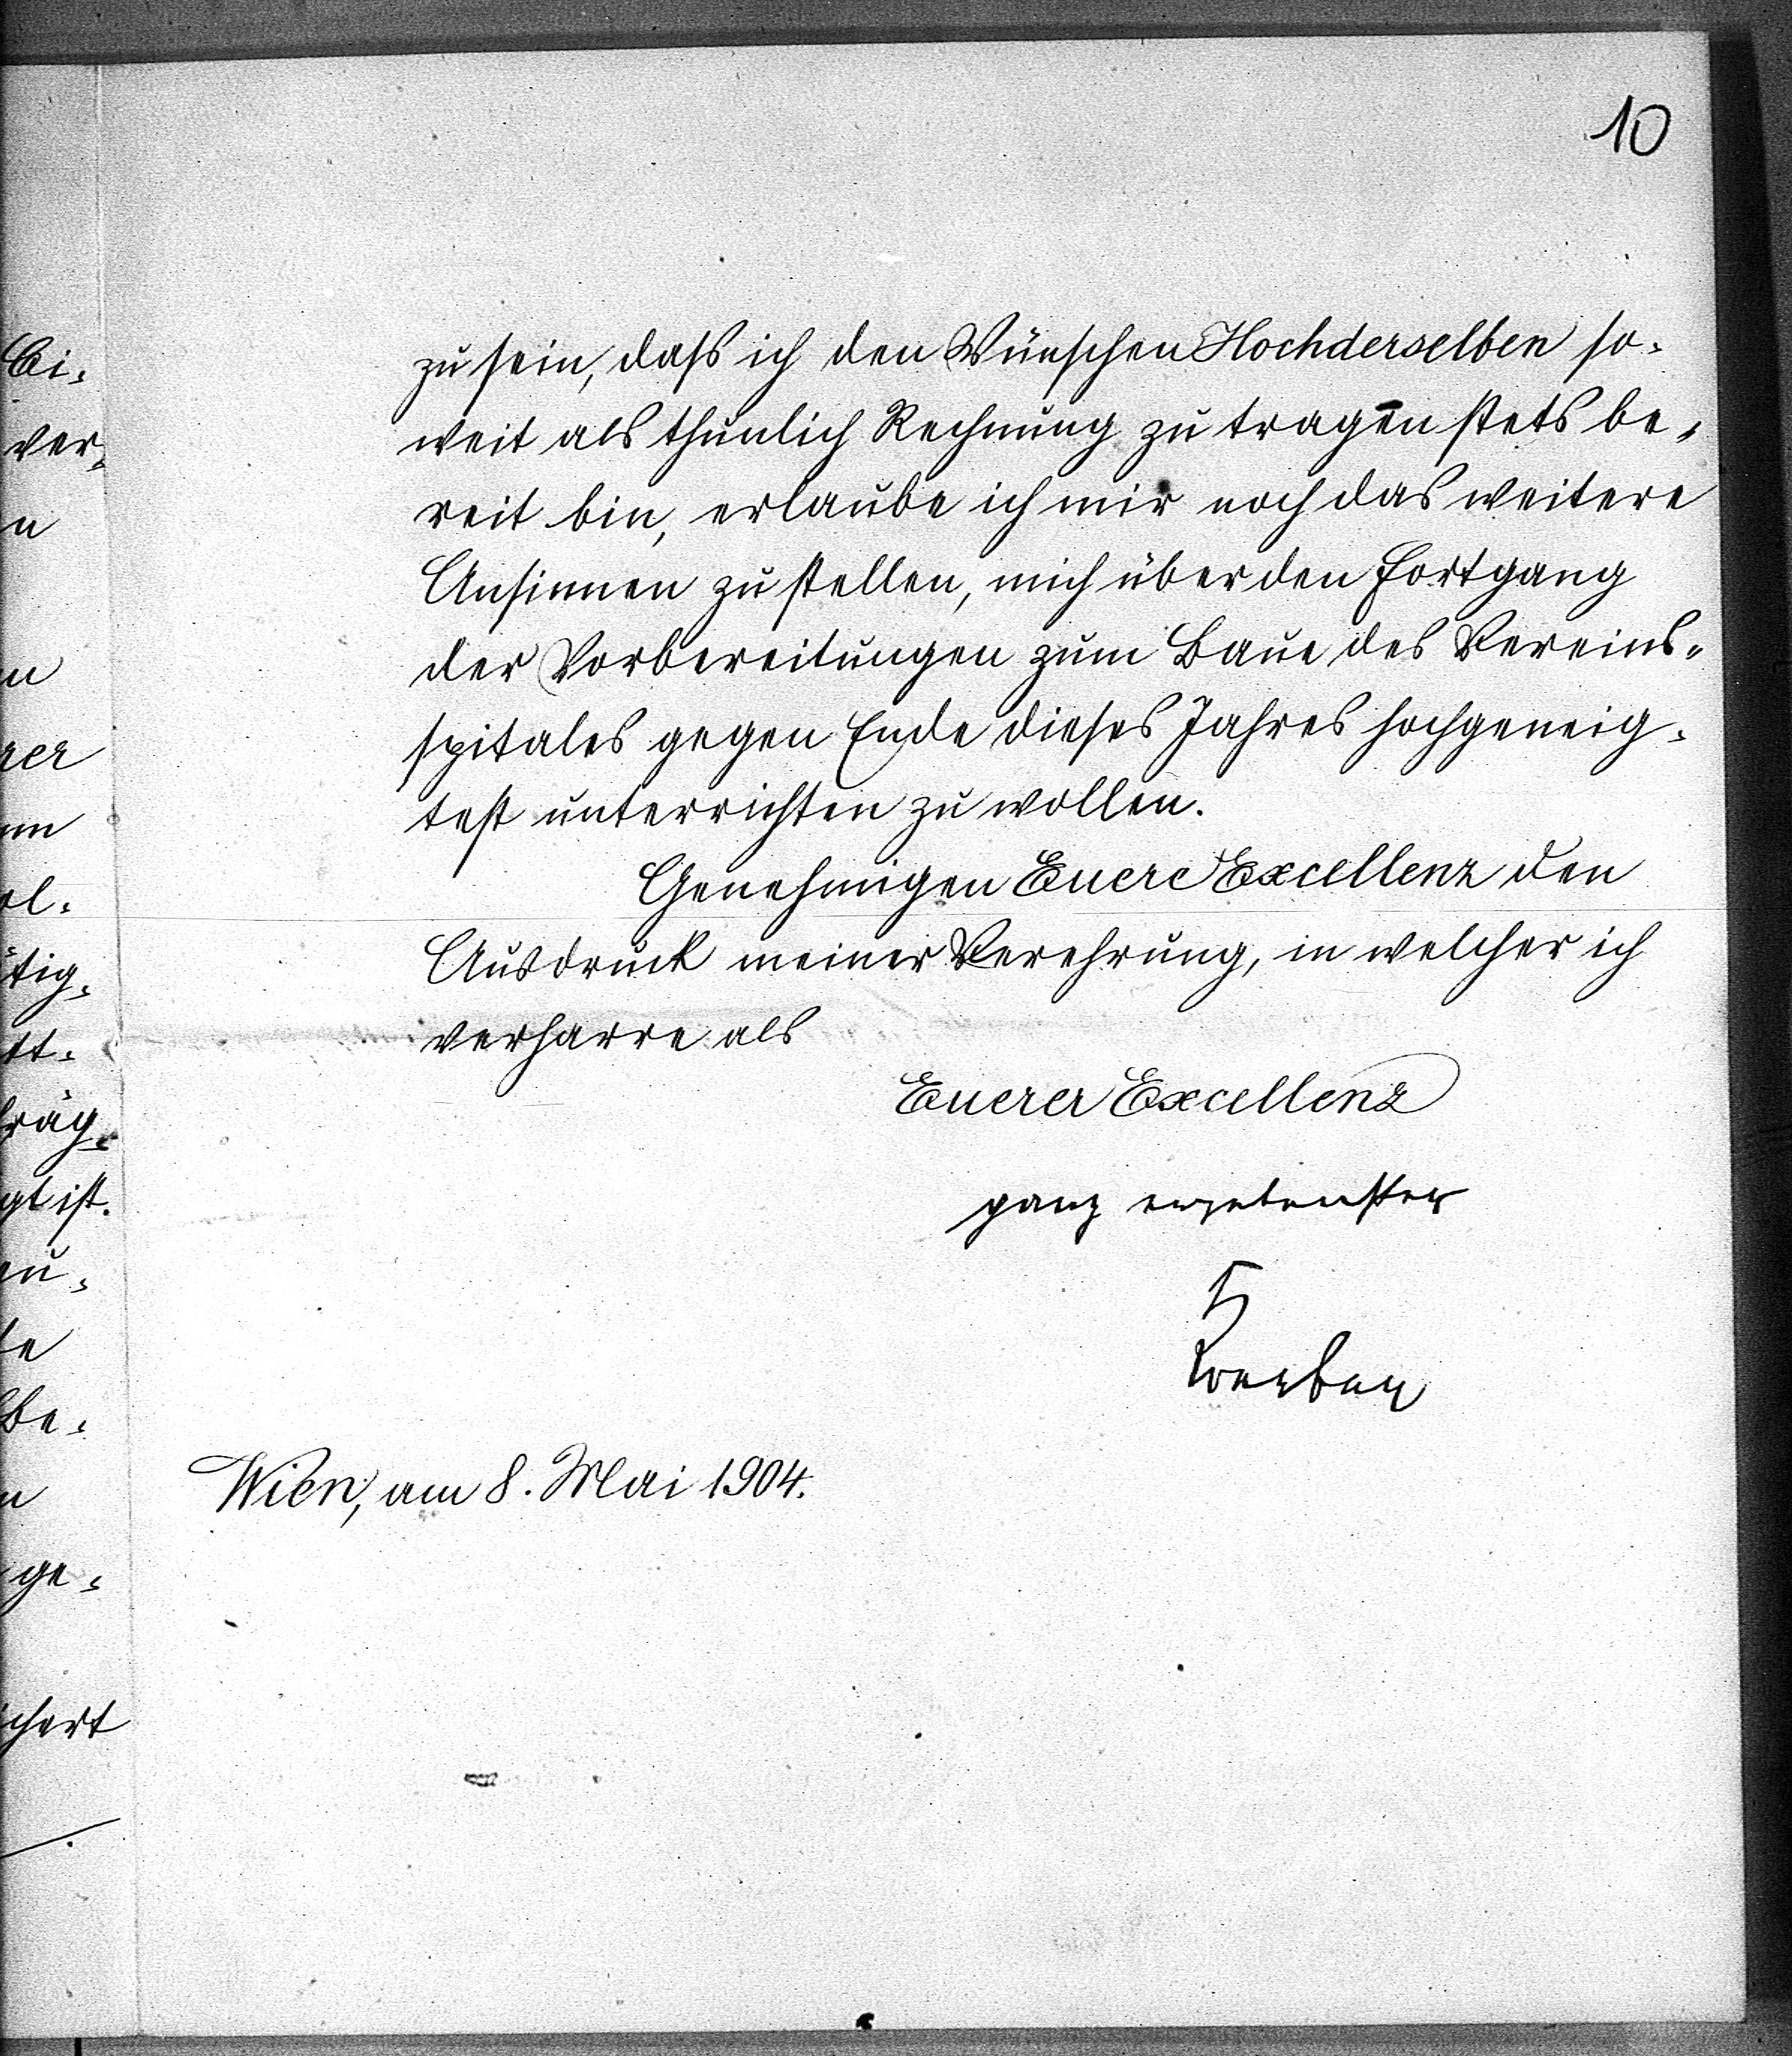 10
zu sein, daß ich den Wünschen Hochderselben so-
weit als thunlich Rechnung zu tragen stets be-
reit bin, erlaube ich mir noch das weitere
Ansinnen zu stellen, mich über den Fortgang
der Vorbereitungen zum Baue des Vereins-
spitales gegen Ende dieses Jahres hochgeneig-
test unterrichten zu wollen.
Genehmigen Euere Excellenz den
Ausdruck meiner Verehrung, in welcher ich
verharre als
Euerer Excellenz
ganz ergebenster
Wien, am 8. Mai 1904.
ver-
n
rer
tig-
tt-
räg-
gt ist.
be-
ge-
chert